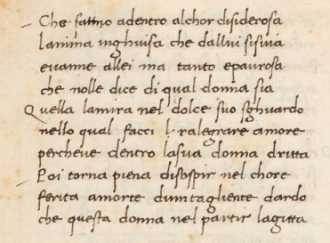 Che fanno adentro alchor disiderosa
lanima inghuisa che dallui sisuia
evanne allei ma tanto epaurosa
che nolle dice di qual donna sia
Quella lamira nel dolce suo sghuardo
nello qual facci l ralegrare amore
percheve dentro lasua donna dritta
Poi torna piena disospir nel chore
ferita amorte duntagliente dardo
che questa donna nel partir lagitta